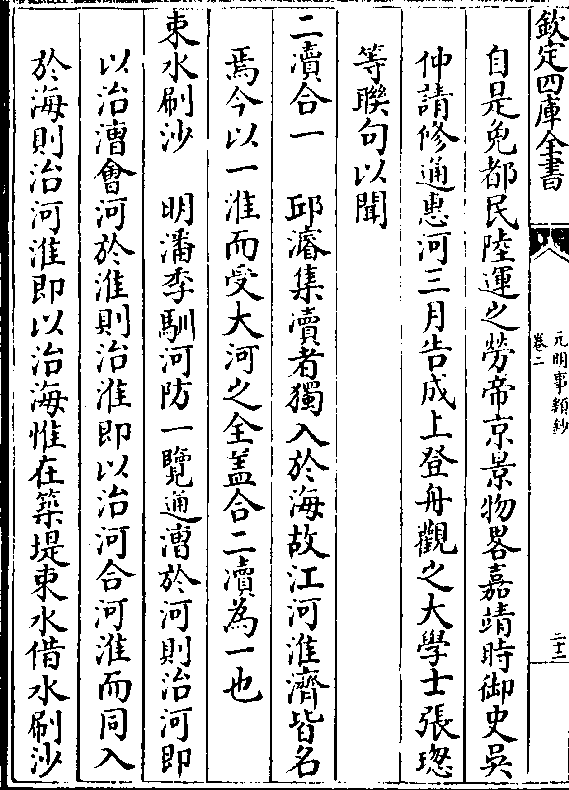 欽定四庫全書
元明事類鈔
卷二
二十二
自是免都民陸運之勞帝京景物畧嘉靖時御史吳
仲請修通惠河三月告成上登舟觀之大學士張璁
等聯句以聞
二瀆合一　邱濬集瀆者獨入於海故江河淮濟皆名
焉今以一淮而受大河之全盖合二瀆為一也
束水刷沙　明潘季馴河防一覽通漕於河則治河即
以治漕會河於淮則治淮即以治河合河淮而同入
於海則治河淮即以治海惟在築堤束水借水刷沙